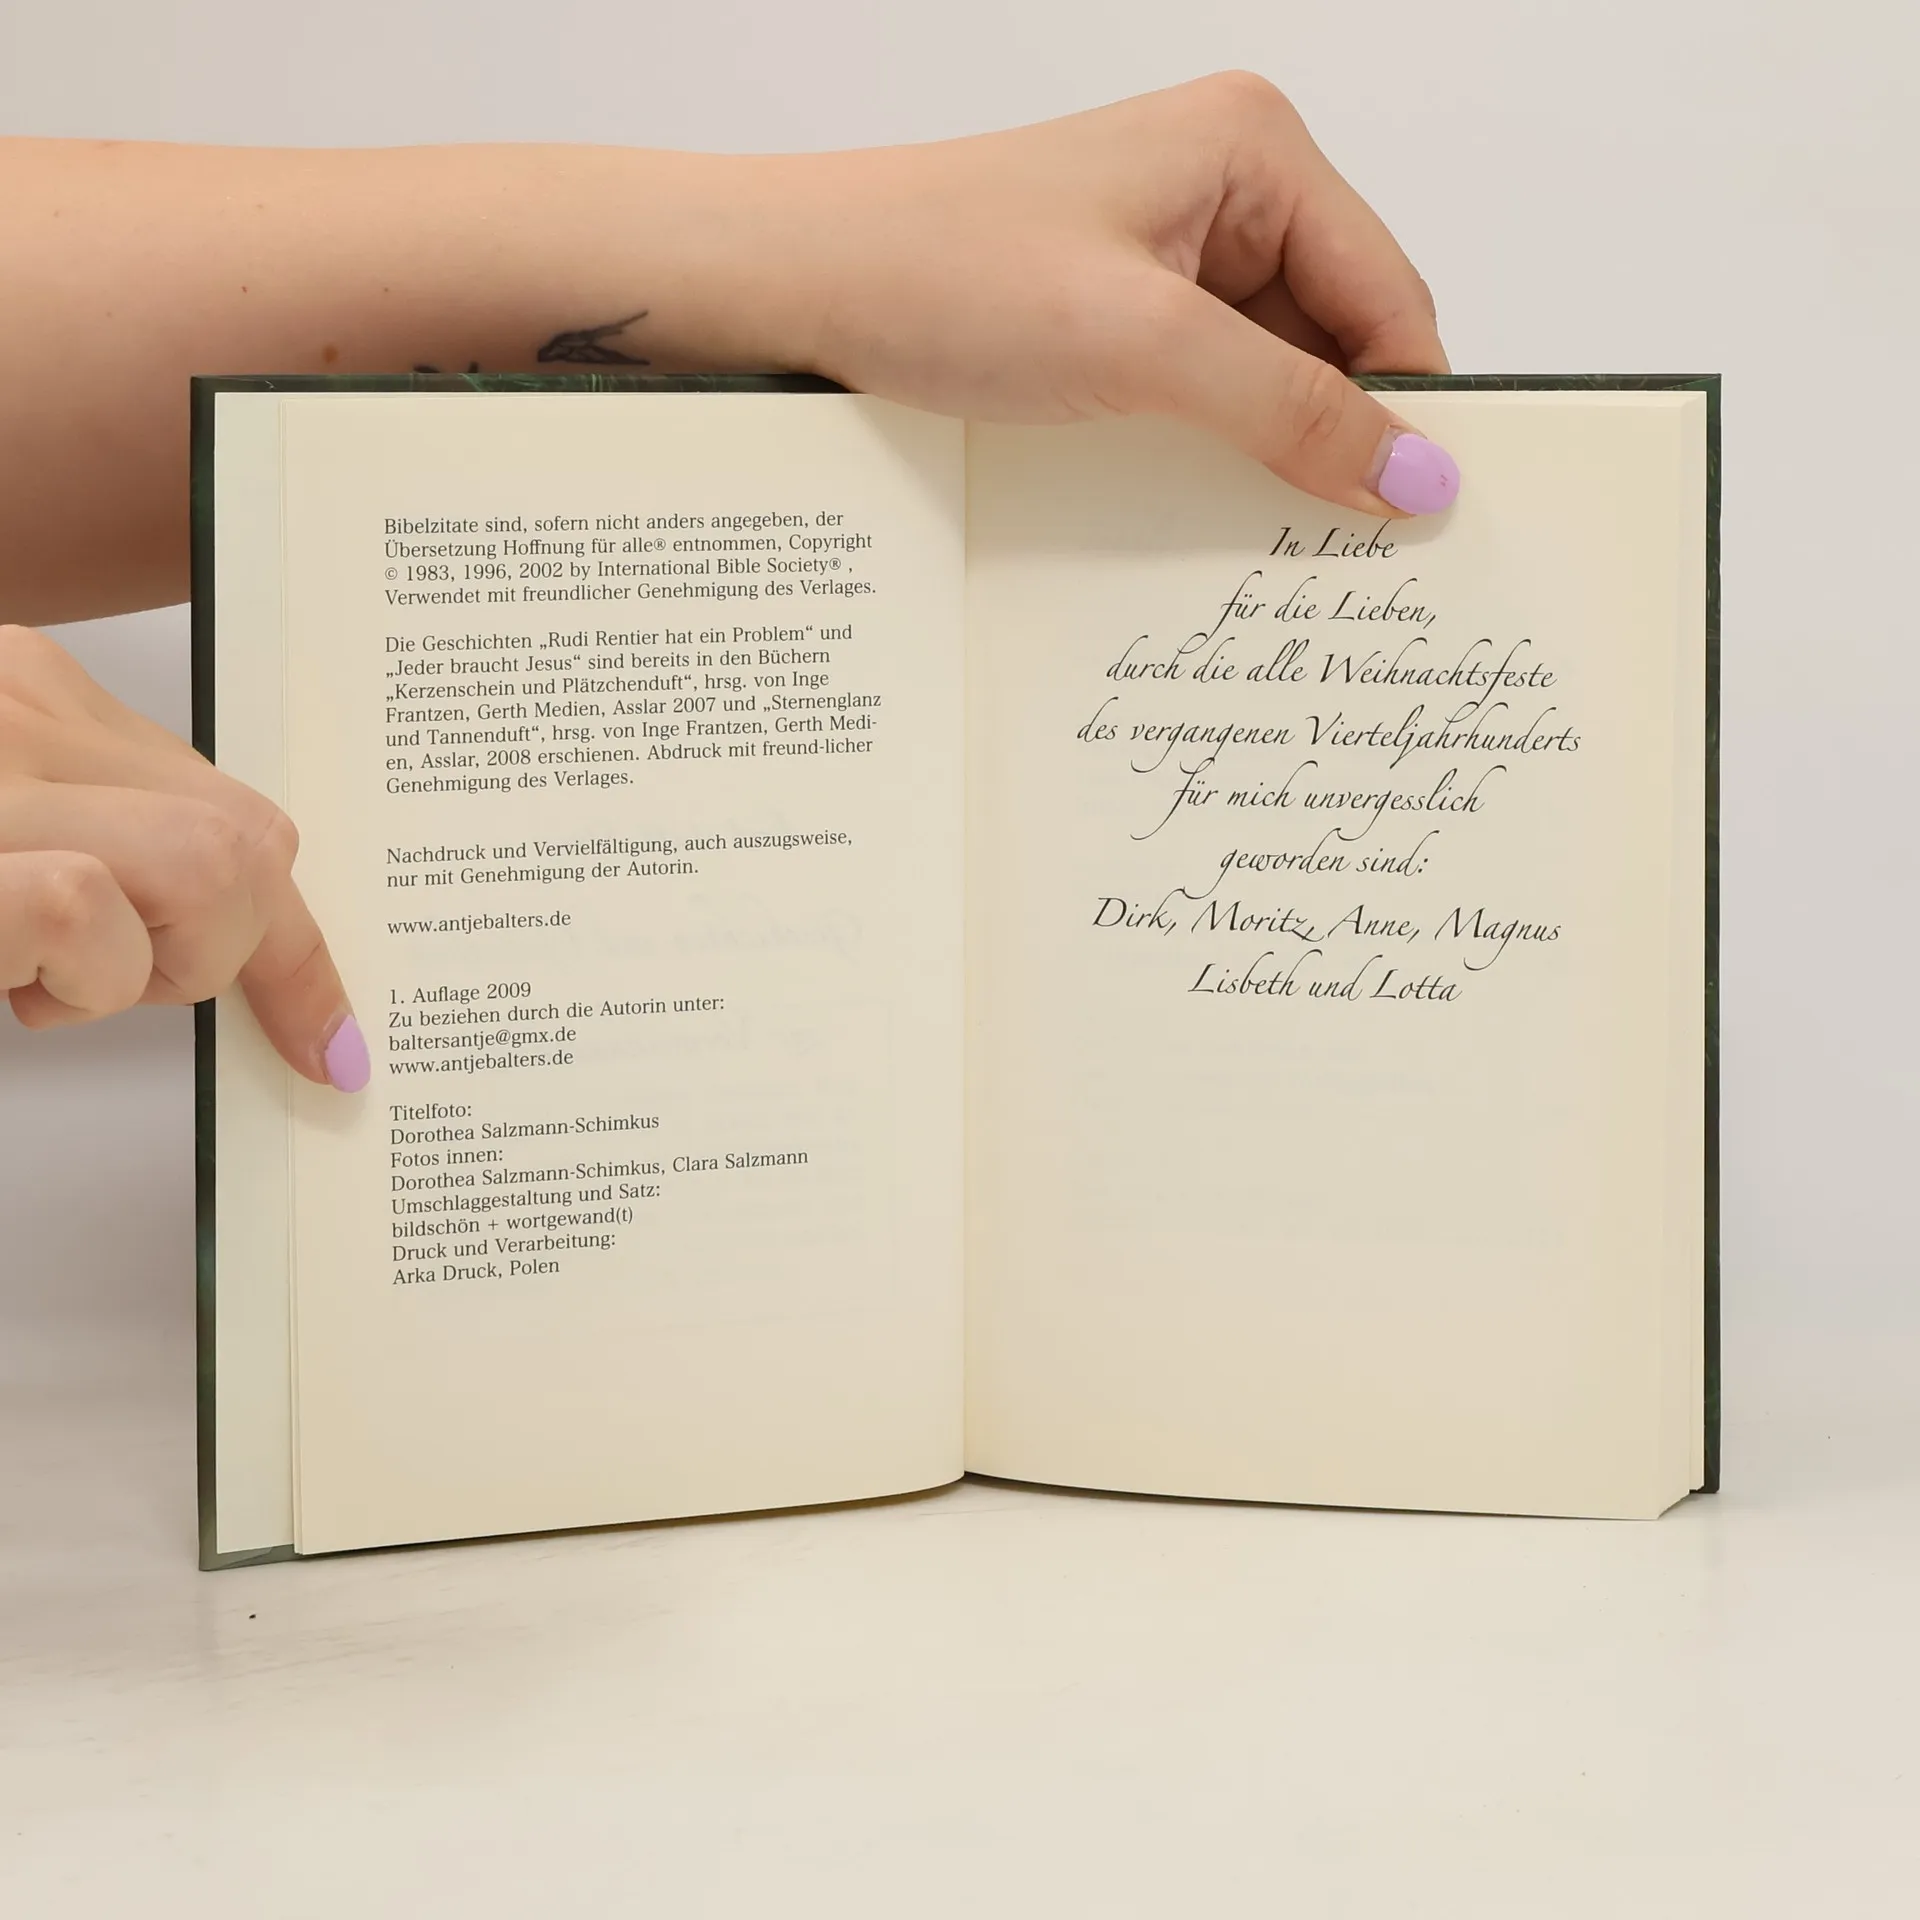 Bibelzitate sind, sofern nicht anders angegeben, der
Übersetzung Hoffnung für alle® entnommen, Copyright
© 1983, 1996, 2002 by International Bible Society® ,
Verwendet mit freundlicher Genehmigung des Verlages.
Die Geschichten „Rudi Rentier hat ein Problem“ und
„Jeder braucht Jesus“ sind bereits in den Büchern
„Kerzenschein und Plätzchenduft“, hrsg. von Inge
Frantzen, Gerth Medien, Asslar 2007 und „Sternenglanz
und Tannenduft“, hrsg. von Inge Frantzen, Gerth Medi-
en, Asslar, 2008 erschienen. Abdruck mit freund-licher
Genehmigung des Verlages.
Nachdruck und Vervielfältigung, auch auszugsweise,
nur mit Genehmigung der Autorin.
www.antjebalters.de
1. Auflage 2009
Zu beziehen durch die Autorin unter:
baltersantje@gmx.de
www.antjebalters.de
Titelfoto:
Dorothea Salzmann-Schimkus
Fotos innen:
Dorothea Salzmann-Schimkus, Clara Salzmann
Umschlaggestaltung und Satz:
bildschön + wortgewand(t)
Druck und Verarbeitung:
Arka Druck, Polen
In Liebe
für die Lieben,
durch die alle Weihnachtsfeste
des vergangenen Vierteljahrhunderts
für mich unvergesslich
geworden sind:
Dirk, Moritz, Anne, Magnus
Lisbeth und Lotta